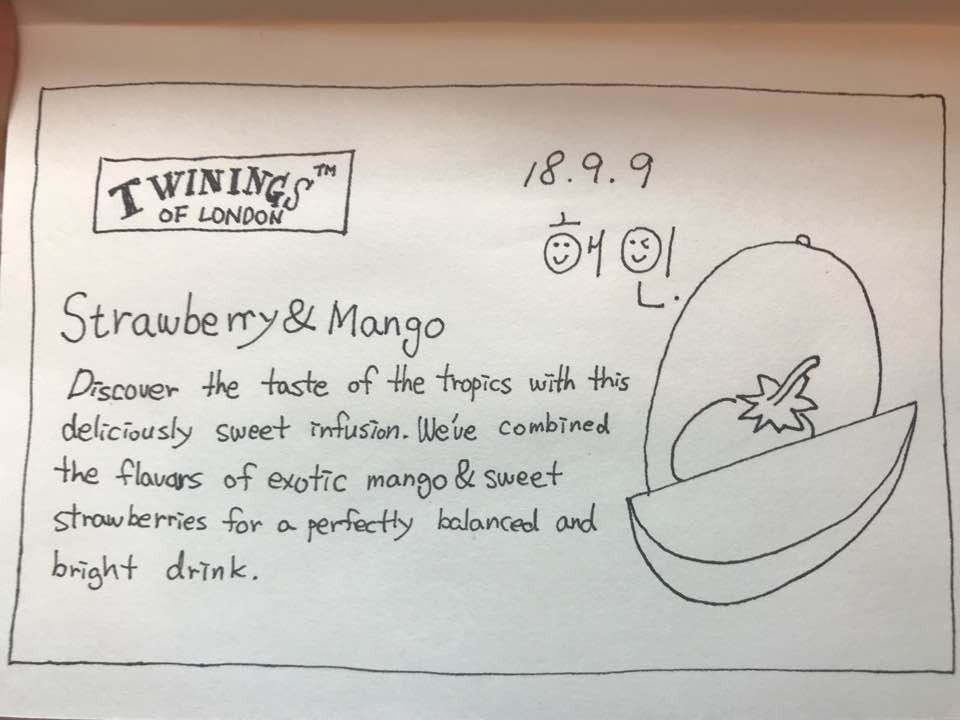 TWININGS™
OF LONDON
18.9.9
혜인.
Strawberry & Mango
Discover the taste of the tropics with this
deliciously sweet infusion. We've combined
the flavors of exotic mango & sweet
strawberries for a perfectly balanced and
bright drink.